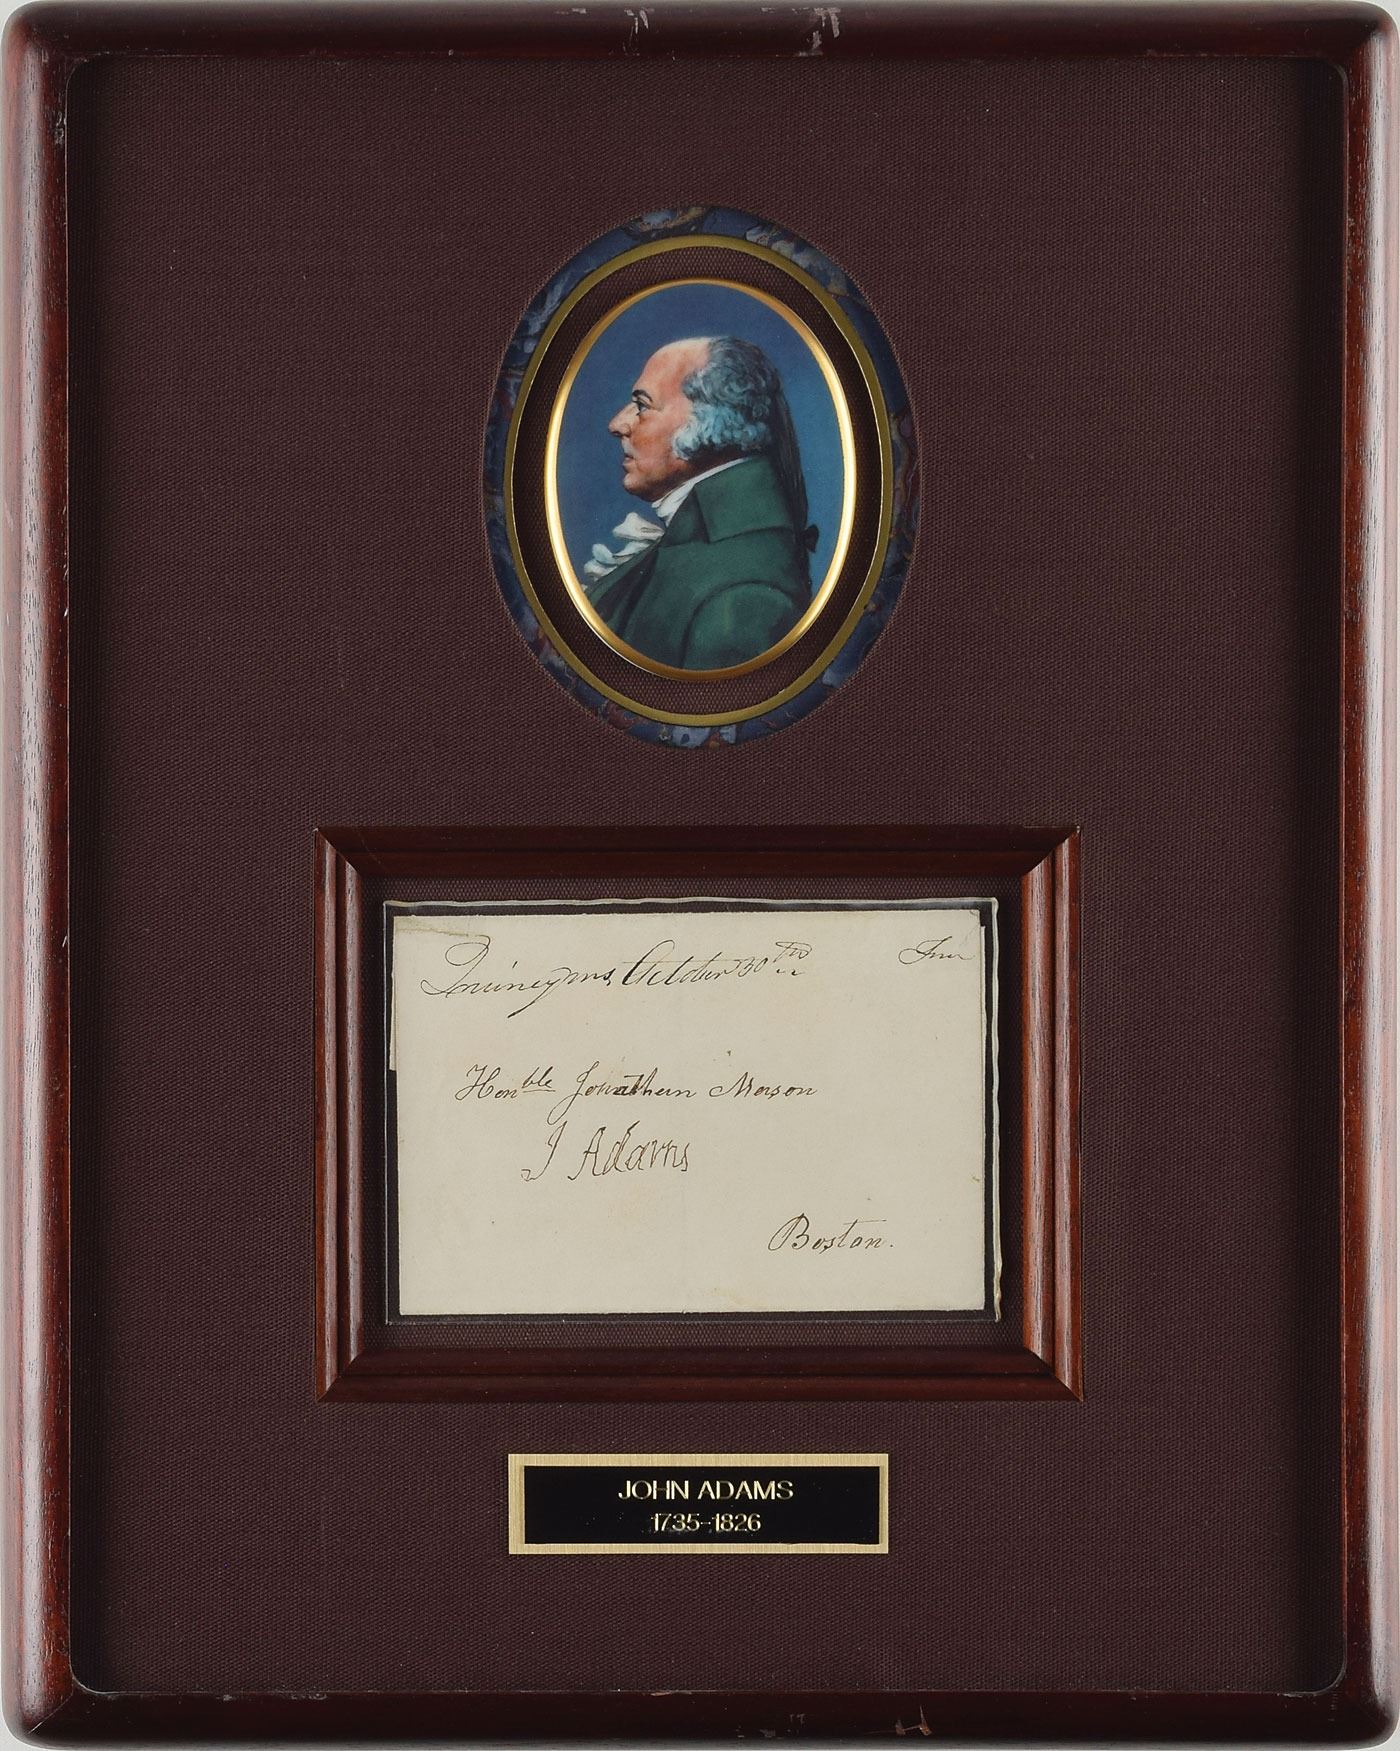 Quincy ms, October 30th Free
Honble Jonathan Mason
J Adams
Boston.
JOHN ADAMS
1735-1826